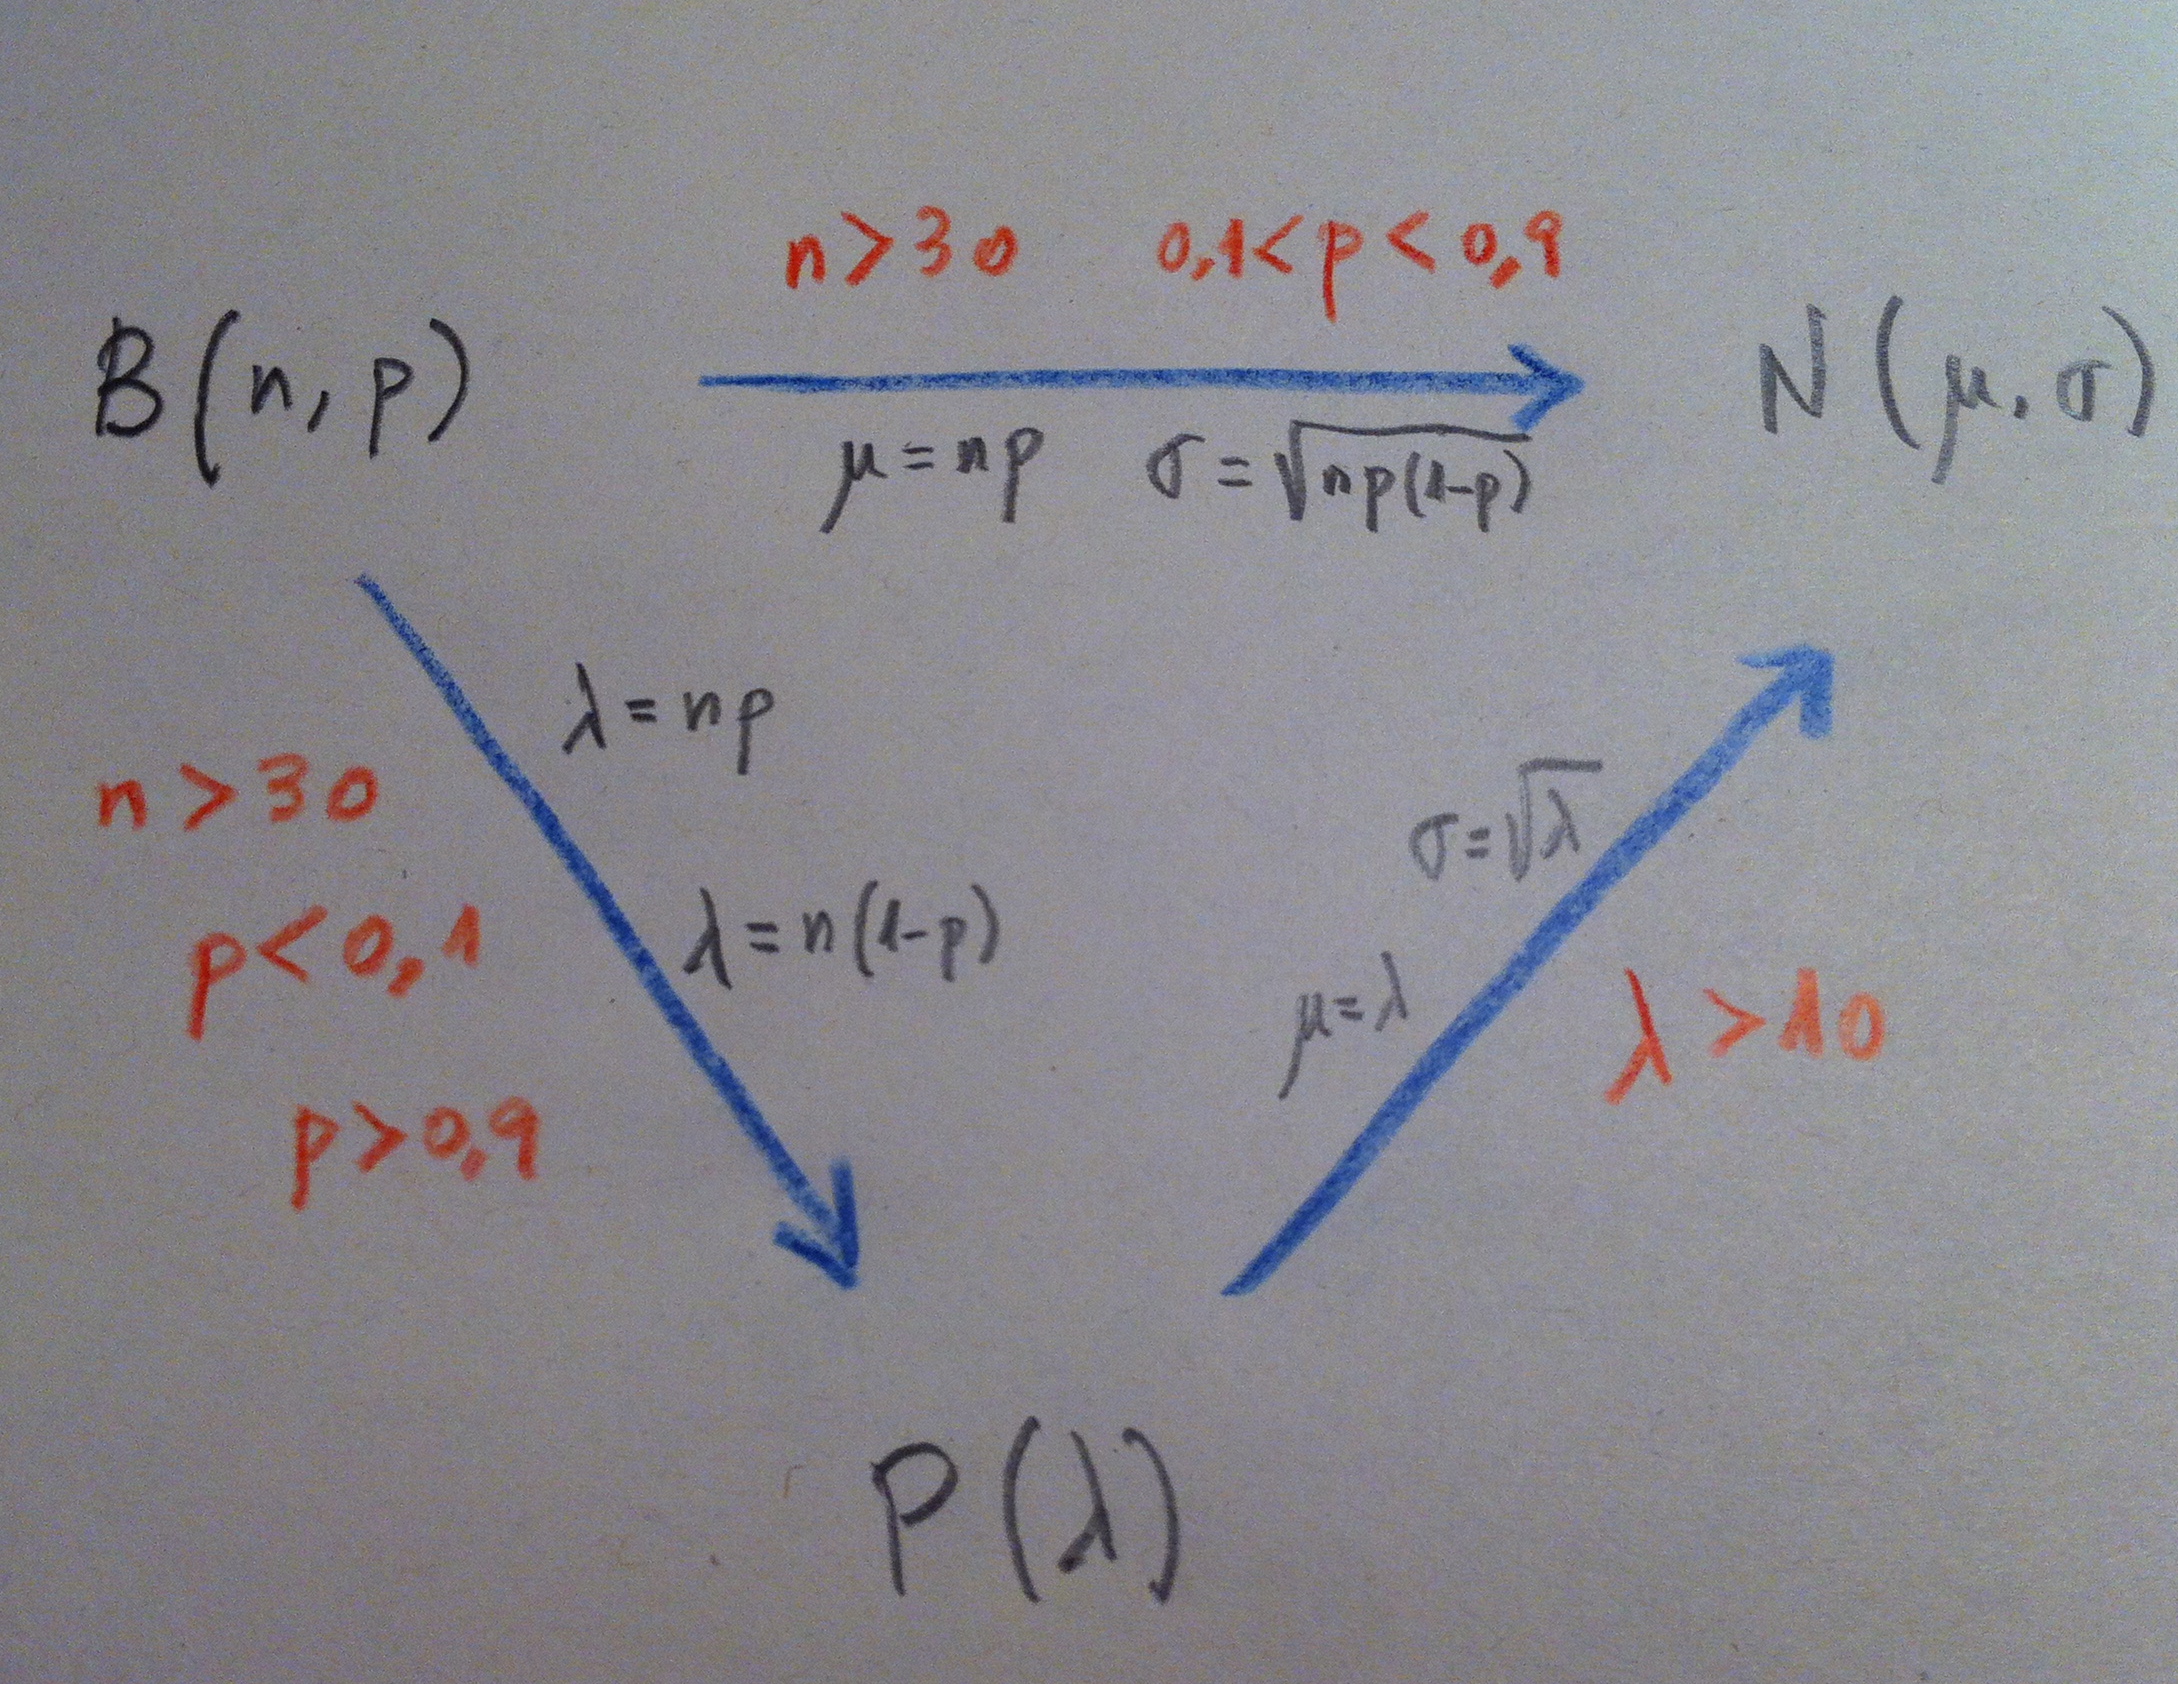 n>30 0,1<p<0,9
B(n,p) N(μ,σ)
μ=np σ=√np(1-p)
λ=np
n>30
σ=√λ
p<0,1
λ=n(1-p)
μ=λ
λ>10
p>0,9
P(λ)